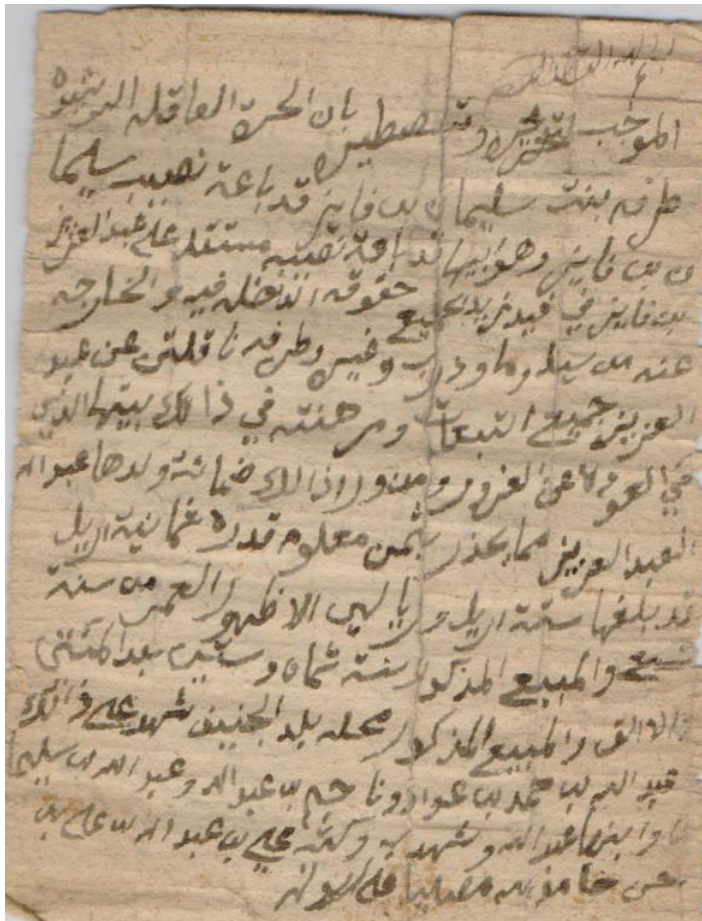 بسم الله الرحمن الرحيم
الموجب تحريره وتسطيره بان الحره العاقله الرشيده
طرفه بنت سليمان بن فايز قد باعة نصيب سليما
ن بن فايز وهو ابيها قد باعة نصيبه مستقله على عبدالعزيز
بن فايز في فيد بجميع حقوقه الداخله فيه والخارجه
عنه من سيل وما ودرب وغيره وطرفه ناقلتن عن عبد
العزيز جميع التبعات ومرهنته في ذالك بيتها الذي
في العوده عن الغرور ومن ورا ذالك ضمانة ولدها عبدالله
العبدالعزيز مما يحذر بثمن معلوم قدره ثمانية اريل
قد بلغها ستة اريل وريالين الا ظهور العمر من سنة
تسع والمبيع المذكور سنة ثمان وستين بعد المئتين
والالف والمبيع المذكور محله بلد الجنيفي شهد على ذالك
عبدالله بن حمد بن عواد وناحم بن عبدالله وعبدالله بن سليما
ن وابنها عبدالله وشهد به وكتبه علي بن عبدالله بن علي بن
حامد لله مصليا على رسوله